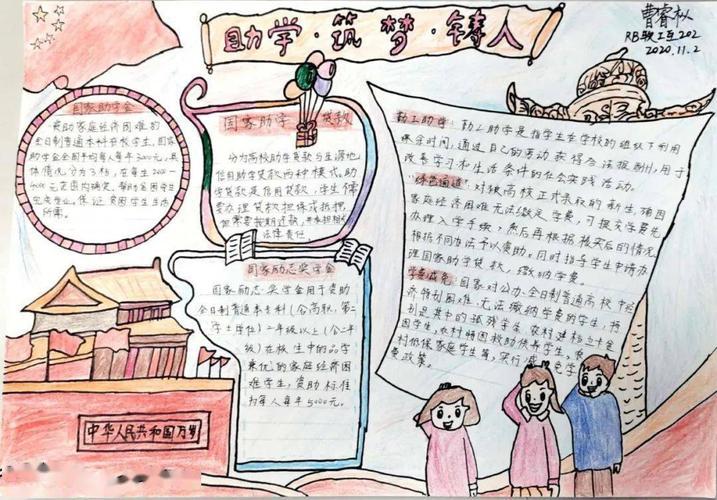 助学·筑梦·铸人
曹睿
RB软工互202
2020.11.2
国家助学金
资助家庭经济困难的
全日制普通本科在校学生,国家
助学金全国平均每人每年3000元,具
体情况分为3档,在每生2000-
4000元范围内确定,帮助贫困学生
完成学业,保证贫困学生生活
所需。
国家助学贷款
分为高校助学贷款与生源地
信用助学贷款两种模式。助
学贷款是信用贷款,学生不需
要办理贷款担保或抵押,
但需要按期还款,并承担相关
法律责任。
国家励志奖学金
国家励志奖学金用于资助
全日制普通本专科(含高职、第二
学士学位)二年级以上(含二年
级)在校生中的品学
兼优的家庭经济困
难学生,资助标准
为每人每年5000元。
勤工助学:勤工助学是指学生在学校的组织下利用
课余时间,通过自己的劳动获得合法报酬,用于
改善学习和生活条件的社会实践活动。
"绿色通道":对被高校正式录取的新生,如因
家庭经济困难无法缴定学费,可提学费先
办理入学手续,然后再根据核实后的情况
根据不同办法予以资助。同时指导学生申请办
理国家助学贷款,缴纳学费。
学费减免:国家对公办全日制普通高校中经
济特别困难、无法缴纳学费的学生,特
别是其中的孤残学生、农村建档立卡贫
困学生、农村特困救助供养学生、农
村低保家庭学生等,实行减免学
费政策。
中华人民共和国万岁